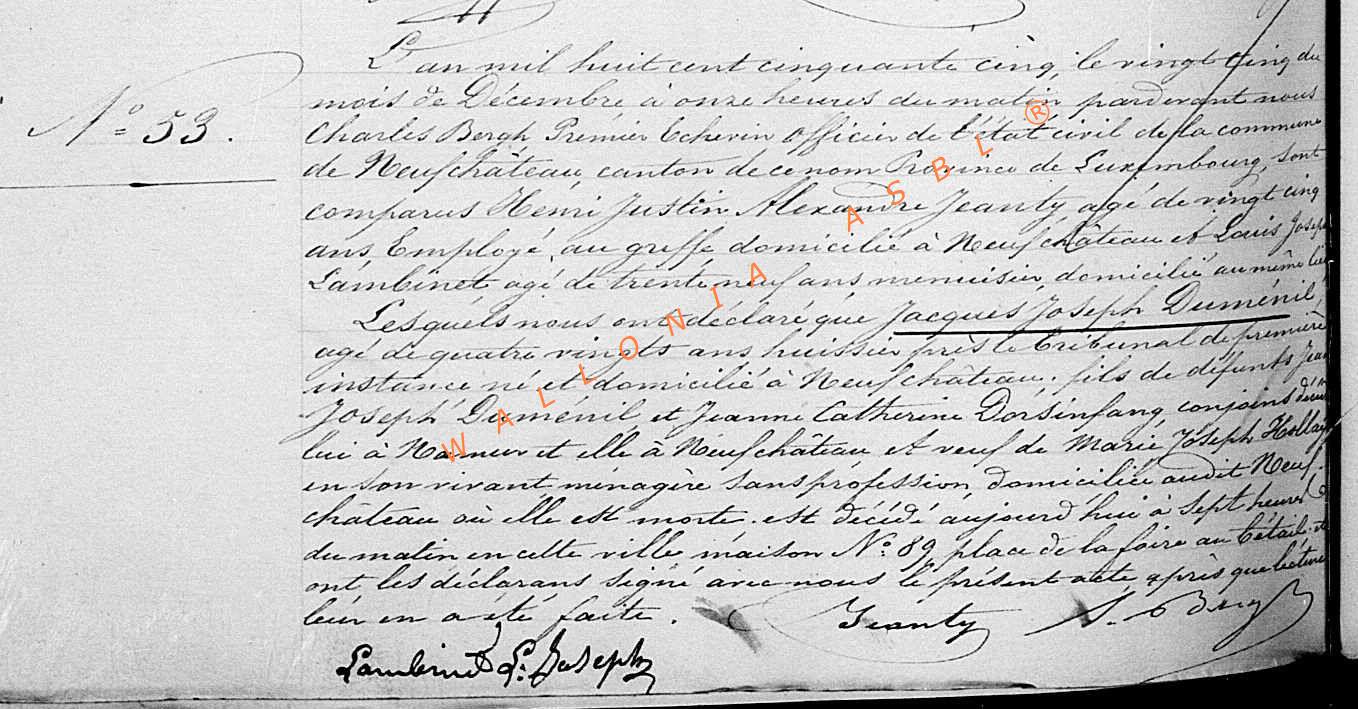 L'an mil huit cent cinquante cinq, le vingt cinq du
mois de Décembre à onze heures du matin pardevant nous
Charles Bergh Premier Echevin officier de l'état civil de la commune
de Neufchâteau, canton de ce nom Province de Luxembourg, sont
N° 53.
comparus Henri Justin Alexandre Jeanty, agé de vingt cinq
ans, Employé au greffe domicilié à Neufchâteau et Louis Joseph
Lambinet agé de trente neuf ans menuisier, domicilié au même lieu
Lesquels nous ont déclaré que Jacques Joseph Duménil,
agé de quatre vingts ans huissier près le tribunal de première
instance né et domicilié à Neufchâteau, fils de défunts Jean
Joseph Duménil et Jeanne Catherine Dorsinfang conjoins décédés
lui à Namur et elle à Neufchâteau et veuf de Marie Joseph
en son vivant ménagère sans profession, domiciliée audit Neuf-
château où elle est morte. est décédé aujourd'hui à sept heures
du matin en cette ville maison N° 89, place de la foire au bétail. et
ont les déclarans signé avec nous le présent acte, après que lecture
leur en a été faite.
Jeanty
Lambinet L. Joseph
WALLONIA ASBL ®